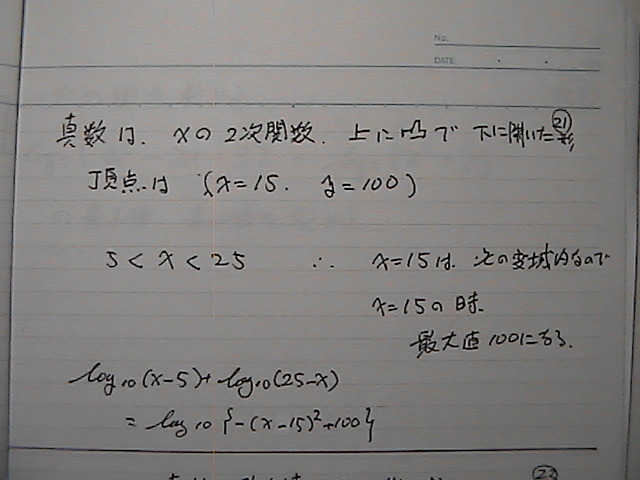 No.
DATE
21
真数は、xの2次関数、上に凸で下に開いた形
頂点は (x=15. y=100)
5 < x < 25 ∴ x=15は、xの変域内なので
x=15の時、
最大値100になる。
log₁₀(x-5)+log₁₀(25-x)
= log₁₀{-(x-15)²+100}
22